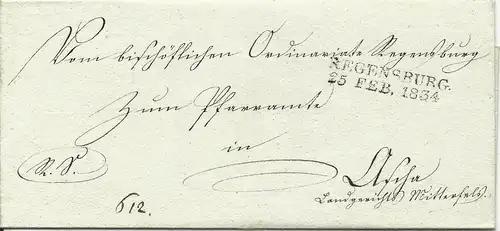 Vom bischöflichen Ordinariate Regensburg
REGENSBURG.
25 FEB. 1834
Zum Pfarramte
in
R. S.
Ascha
Landgerichts Mitterfels.
612.